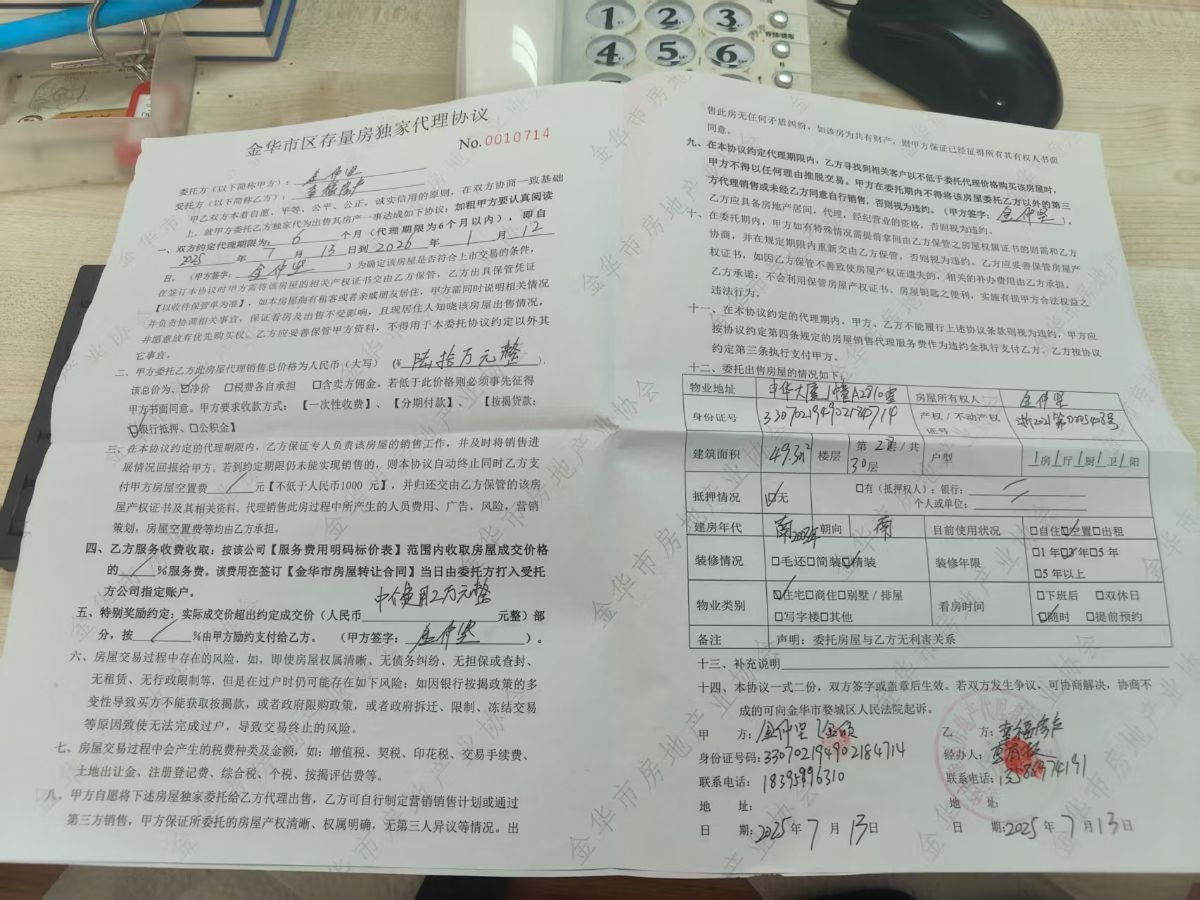 金华市区存量房独家代理协议
No.0010714
委托方(以下简称甲方):金仲坚
受托方(以下简称乙方):幸福房产
甲乙双方本着自愿、平等、公平、公正、诚实信用的原则,在双方协商一致基础
上,就甲方委托乙方独家代为出售其房产一事达成如下协议:加粗甲方要认真阅读
一、双方约定代理期限为: 6 个月(代理期限为6个月以内),即自
2025 年 7 月 13 日到 2026 年 1 月 12
日。(甲方签字:金仲坚)为确定该房屋是否符合上市交易的条件,
在签订本协议时甲方需将该房屋的相关产权证书交由乙方保管,乙方出具保管凭证
【以收件保管单为准】,如本房屋尚有租客或者亲戚朋友居住,甲方需同时说明相关情况
并负责协调相关事宜,保证看房及出售不受影响,且现居住人知晓该房屋出售情况,
并愿意放弃优先购买权。乙方应妥善保管甲方资料,不得用于本委托协议约定以外其
它事宜。
二、甲方委托乙方此房屋代理销售总价格为人民币(大写)(¥ 陆拾万元整 ),
该总价为、☑净价 □税费各自承担 □含卖方佣金。若低于此价格则必须事先征得
甲方书面同意。甲方要求收款方式:【一次性收费】、【分期付款】、【按揭贷款:
☑银行抵押、□公积金】
三、在本协议约定的代理期限内,乙方保证专人负责该房屋的销售工作,并及时将销售进
展情况回报给甲方。若到约定期限仍未能实现销售的,则本协议自动终止同时乙方支
付甲方房屋空置费 / 元【不低于人民币1000 元】,并归还交由乙方保管的该房
屋产权证书及其相关资料。代理销售此房过程中所产生的人员费用、广告,风险,营销
策划,房屋空置费等均由乙方承担。
四、乙方服务收费收取:按该公司【服务费用明码标价表】范围内收取房屋成交价格
的 / %服务费。该费用在签订【金华市房屋转让合同】当日由委托方打入受托
方公司指定账户。 中介费用2万元整
五、特别奖励约定:实际成交价超出约定成交价(人民币 元整)部
分,按 / %由甲方励约支付给乙方。 (甲方签字:金仲坚)。
六、房屋交易过程中存在的风险,如,即使房屋权属清晰、无债务纠纷、无担保或查封、
无租赁、无行政限制等,但是在过户时仍可能存在如下风险:如因银行按揭政策的多
变性导致买方不能获取按揭款,或者政府限购政策,或者政府拆迁、限制、冻结交易
等原因致使无法完成过户,导致交易终止的风险。
七、房屋交易过程中会产生的税费种类及金额,如:增值税、契税、印花税、交易手续费、
土地出让金、注册登记费、综合税、个税、按揭评估费等。
八、甲方自愿将下述房屋独家委托给乙方代理出售,乙方可自行制定营销销售计划或通过
第三方销售,甲方保证所委托的房屋产权清晰、权属明确,无第三人异议等情况。出
售此房无任何矛盾纠纷,如该房为共有财产,则甲方保证已经征得所有共有权人书面
同意。
九、在本协议约定代理期限内,乙方寻找到相关客户以不低于委托代理价格购买该房屋时,
甲方不得以任何理由推脱交易。甲方在委托期内不得将该房屋委托乙方以外的第三
方代理销售或未经乙方同意自行销售,否则视为违约。(甲方签字:金仲坚),
乙方应具备房地产居间,代理,经纪营业的资格,否则视为违约。
十、在委托期内,甲方如有特殊情况需提前拿回由乙方保管之房屋权属证书的则需和乙方
协商,并在规定期限内重新交由乙方保管,否则视为违约。乙方应妥善保管房屋产
权证书,如因乙方保管不善致使房屋产权证遗失的,相关的补办费用由乙方承担。
乙方承诺:不会利用保管房屋产权证书、房屋钥匙之便利,实施有损甲方合法权益之
违法行为。
十一、在本协议约定的代理期内,甲方、乙方不能履行上述协议条款则视为违约,甲方应
按协议约定第四条规定的房屋销售代理服务费作为违约金执行支付乙方。乙方按协议
约定第三条执行支付甲方。
十二、委托出售房屋的情况如下:
物业地址 中华大厦1幢A2810室 房屋所有权人 金仲坚
身份证号 330702194902184714 产权/不动产权证号 浙2021第0025408号
建筑面积 49.3m² 楼层 第 28/共30层 户型 1房1厅1厨1卫1阳
抵押情况 ☑无 □有(抵押权人):银行:
个人或单位:
建房年代 朝向 南 目前使用状况 □自住☑空置□出租
装修情况 □毛还□简装☑精装 装修年限 □1年☑3年□5年
□5年以上
物业类别 ☑住宅□商住□别墅/排屋
□写字楼□其他
看房时间 □下班后 □双休日
☑随时 □提前预约
备注 声明:委托房屋与乙方无利害关系
十三、补充说明
十四、本协议一式二份,双方签字或盖章后生效。若双方发生争议,可协商解决,协商不
成的可向金华市婺城区人民法院起诉。
甲 方:金仲坚
身份证号码:330702194902184714
联系电话:18395996310
地 址:
日 期:2025年 7 月 13日
乙 方:幸福房产
经办人:
联系电话:
地 址:
日 期:2025 年 7 月 13日